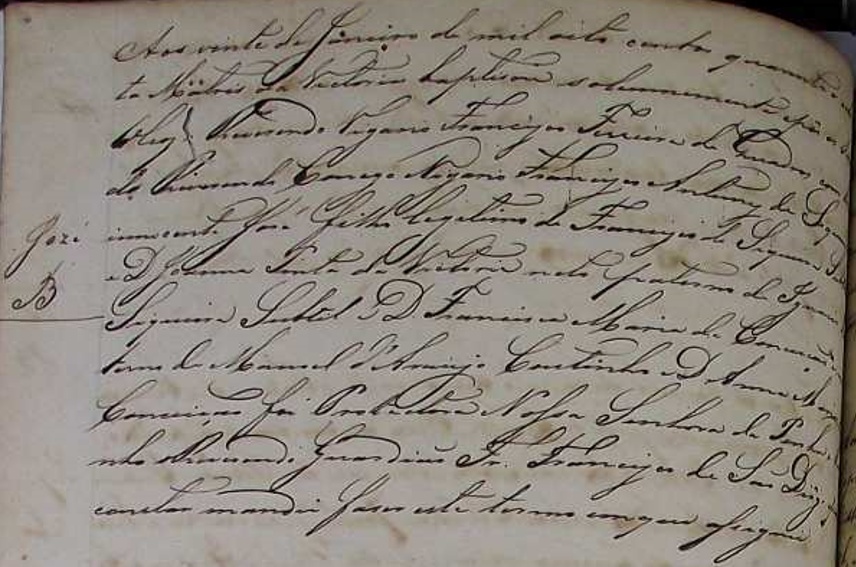 Aos vinte de Janeiro de mil oito centos quarenta e
ta Matris da Victoria baptisou solemnemente e pôs os
Reverendo Vigario Francisco Ferreira de Quadros com
do Reverendo Conego Vigario Francisco Antunes de Siqueira
José innocente José filho legitimo de Francisco de Siqueira
B e D Joanna Pinto da Victoria neto paterno de Ignacio
Siqueira Subtil e D Francisca Maria da Conceição e
terno de Manoel d'Araujo Coutinho e D Anna Maria
Conceição foi Protectora Nossa Senhora da Penha
nho Reverendo Guardião Fr. Francisco de São Diogo
constar mandei fazer este termo em que assignei